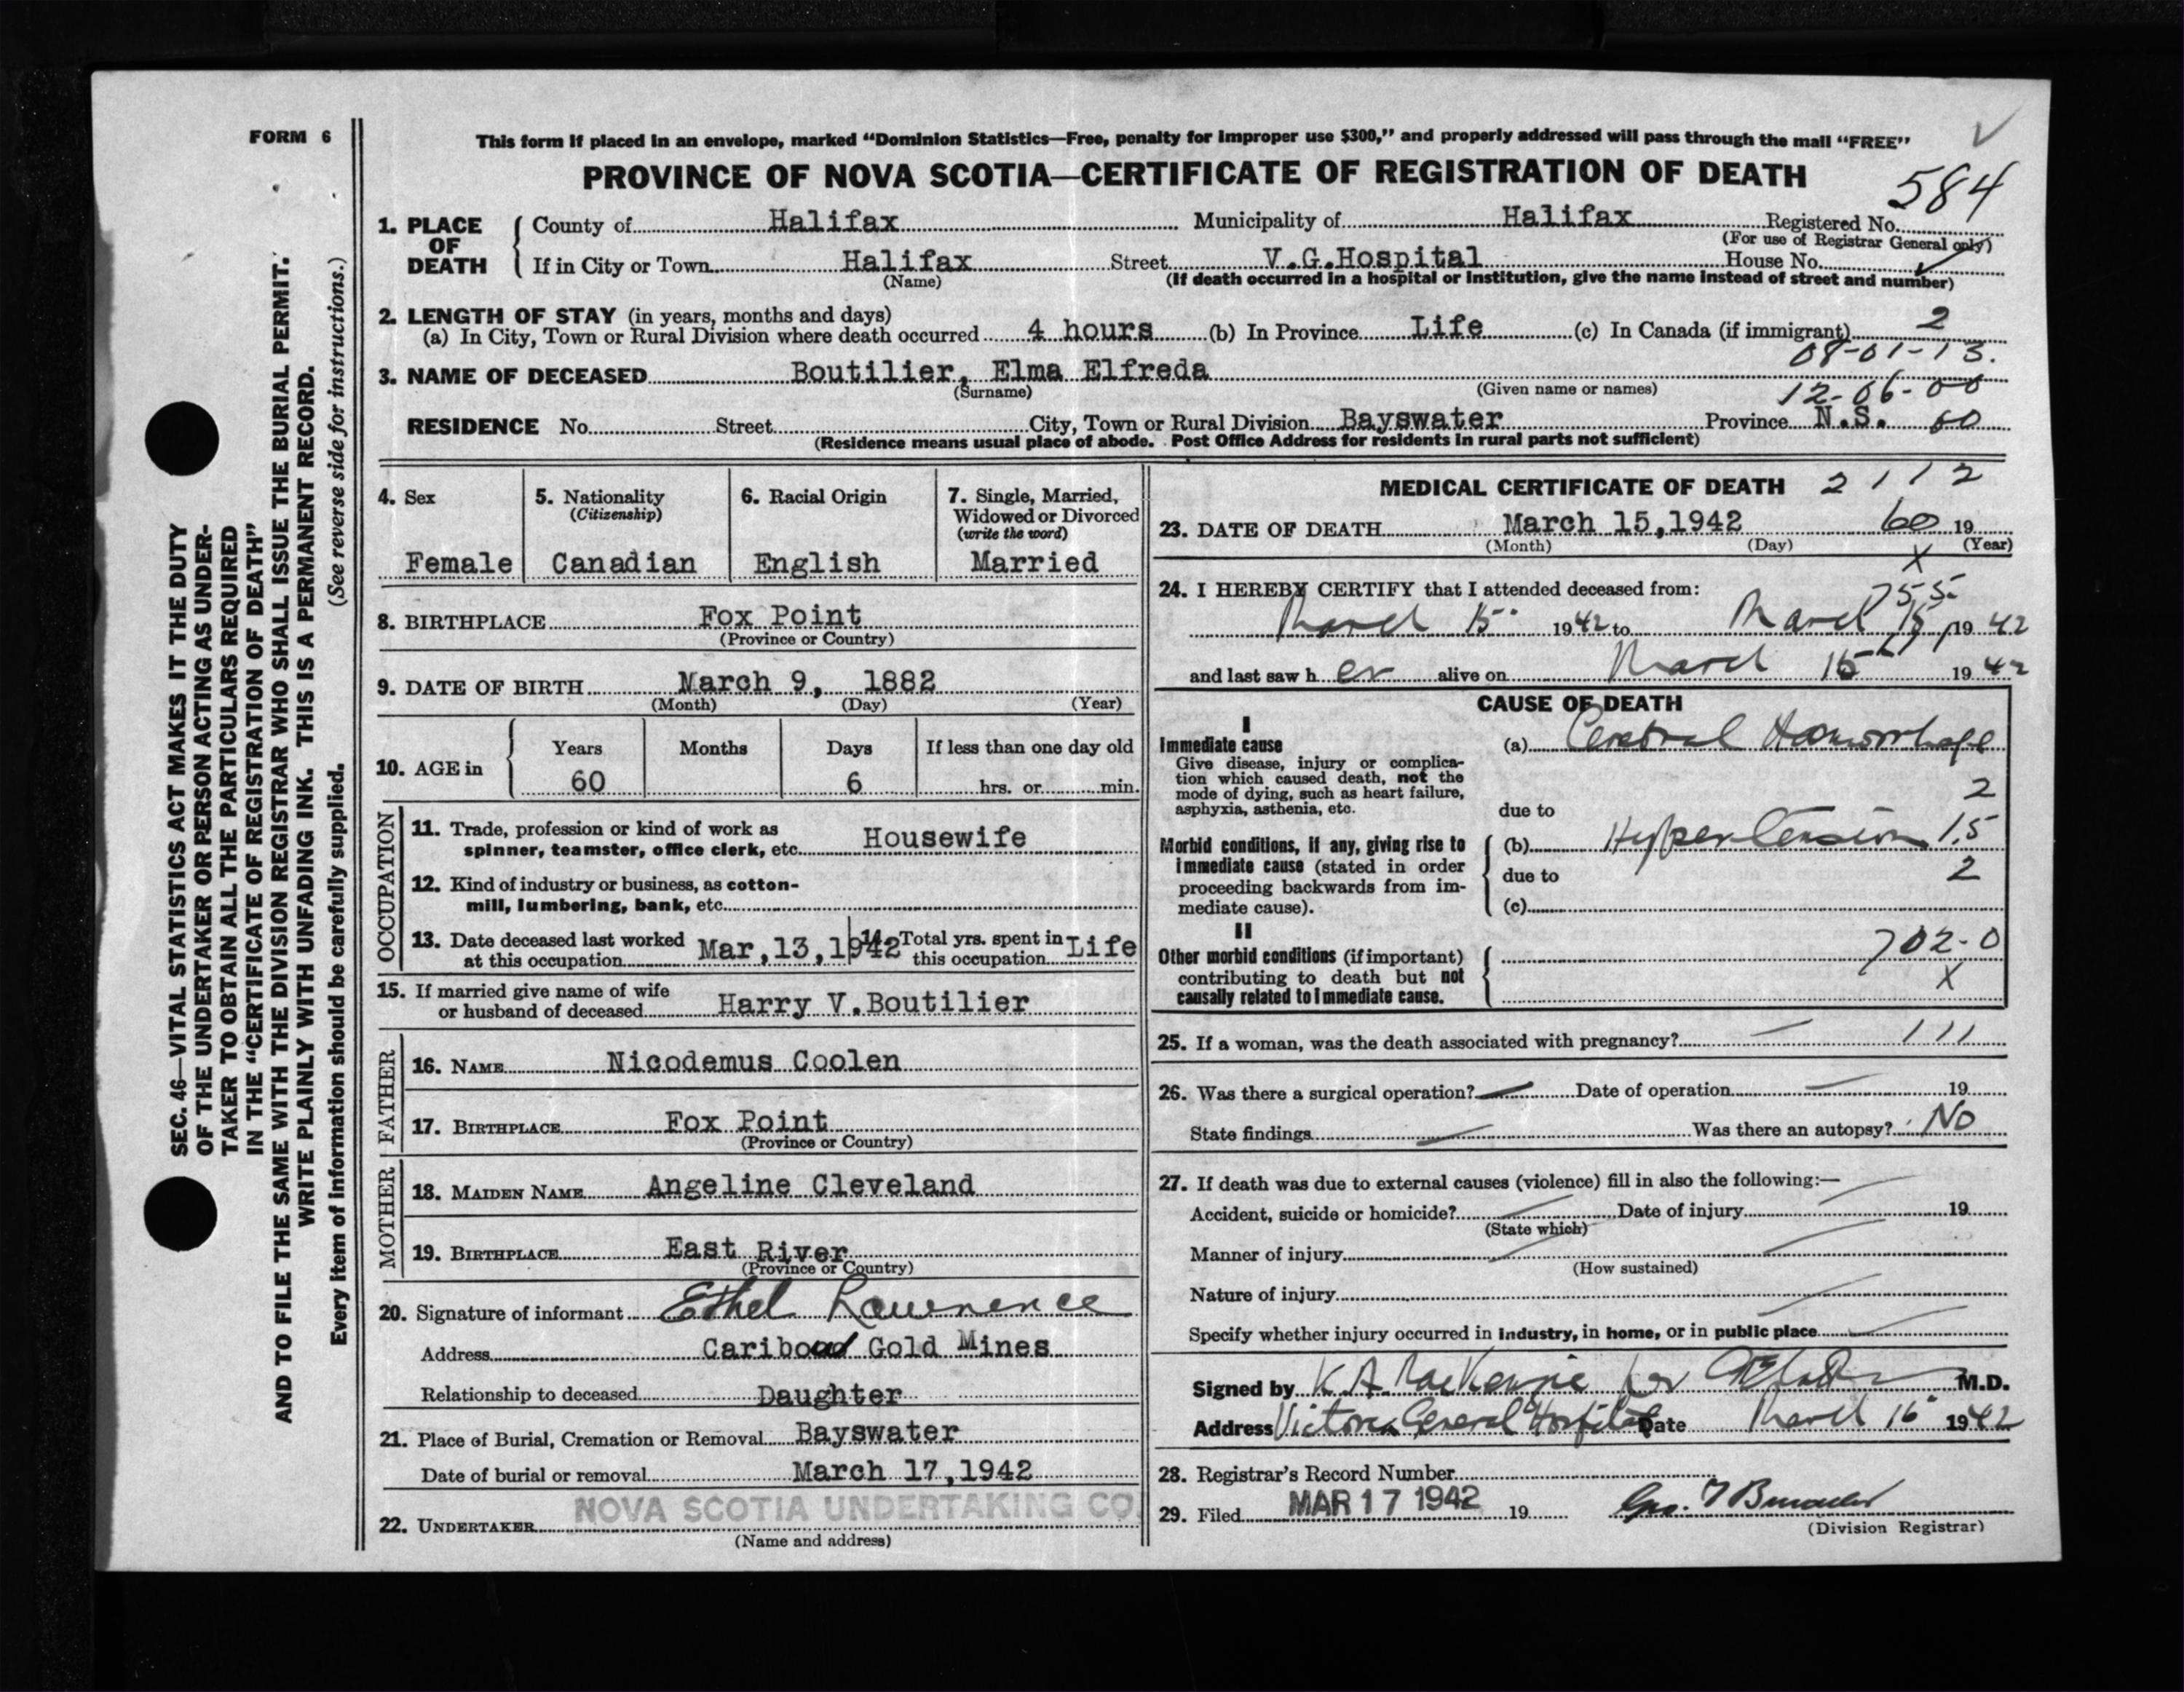 FORM 6
This form if placed in an envelope, marked "Dominion Statistics—Free, penalty for improper use $300," and properly addressed will pass through the mail "FREE"
PROVINCE OF NOVA SCOTIA—CERTIFICATE OF REGISTRATION OF DEATH
584
1. PLACE OF DEATH
County of Halifax Municipality of Halifax Registered No.
(For use of Registrar General only)
If in City or Town Halifax Street V.G.Hospital House No.
(Name) (If death occurred in a hospital or institution, give the name instead of street and number)
2. LENGTH OF STAY (in years, months and days)
(a) In City, Town or Rural Division where death occurred 4 hours (b) In Province Life (c) In Canada (if immigrant) 2
08-01-13.
3. NAME OF DECEASED Boutilier, Elma Elfreda
(Surname) (Given name or names) 12-06-00
RESIDENCE No. Street City, Town or Rural Division Bayswater Province N.S. 60
(Residence means usual place of abode. Post Office Address for residents in rural parts not sufficient)
4. Sex
Female
5. Nationality
(Citizenship)
Canadian
6. Racial Origin
English
7. Single, Married,
Widowed or Divorced
(write the word)
Married
8. BIRTHPLACE Fox Point
(Province or Country)
9. DATE OF BIRTH March 9, 1882
(Month) (Day) (Year)
10. AGE in
Years Months Days If less than one day old
60 6 hrs. or min.
OCCUPATION
11. Trade, profession or kind of work as
spinner, teamster, office clerk, etc. Housewife
12. Kind of industry or business, as cotton-
mill, lumbering, bank, etc.
13. Date deceased last worked
at this occupation Mar,13,1942
14. Total yrs. spent in
this occupation Life
15. If married give name of wife
or husband of deceased Harry V.Boutilier
FATHER
16. NAME Nicodemus Coolen
17. BIRTHPLACE Fox Point
(Province or Country)
MOTHER
18. MAIDEN NAME Angeline Cleveland
19. BIRTHPLACE East River
(Province or Country)
20. Signature of informant Ethel Lawrence
Address Gold Mines
Relationship to deceased Daughter
21. Place of Burial, Cremation or Removal Bayswater
Date of burial or removal March 17,1942
22. UNDERTAKER NOVA SCOTIA UNDERTAKING CO.
(Name and address)
MEDICAL CERTIFICATE OF DEATH 2 1 1 2
23. DATE OF DEATH March 15,1942 60 19
(Month) (Day) (Year)
X
24. I HEREBY CERTIFY that I attended deceased from:
March 15 1942 to March 15 1942
and last saw h er alive on March 15 1942
CAUSE OF DEATH
I
Immediate cause
Give disease, injury or complica-
tion which caused death, not the
mode of dying, such as heart failure,
asphyxia, asthenia, etc.
(a) Cerebral Haemorrhage
2
due to
Morbid conditions, if any, giving rise to
immediate cause (stated in order
proceeding backwards from im-
mediate cause).
(b) Hypertension 15
due to 2
(c)
II
Other morbid conditions (if important)
contributing to death but not
causally related to immediate cause.
702-0
X
25. If a woman, was the death associated with pregnancy? — 111
26. Was there a surgical operation? — Date of operation — 19
State findings — Was there an autopsy? No
27. If death was due to external causes (violence) fill in also the following:—
Accident, suicide or homicide? Date of injury 19
(State which)
Manner of injury
(How sustained)
Nature of injury
Specify whether injury occurred in industry, in home, or in public place
Signed by K.A. MacKenzie for M.D.
Address Victoria General Hospital Date March 16 1942
28. Registrar's Record Number
29. Filed MAR 17 1942 19
(Division Registrar)
SEC. 46—VITAL STATISTICS ACT MAKES IT THE DUTY
OF THE UNDERTAKER OR PERSON ACTING AS UNDER-
TAKER TO OBTAIN ALL THE PARTICULARS REQUIRED
IN THE "CERTIFICATE OF REGISTRATION OF DEATH"
AND TO FILE THE SAME WITH THE DIVISION REGISTRAR WHO SHALL ISSUE THE BURIAL PERMIT.
WRITE PLAINLY WITH UNFADING INK. THIS IS A PERMANENT RECORD.
Every item of information should be carefully supplied. (See reverse side for instructions.)